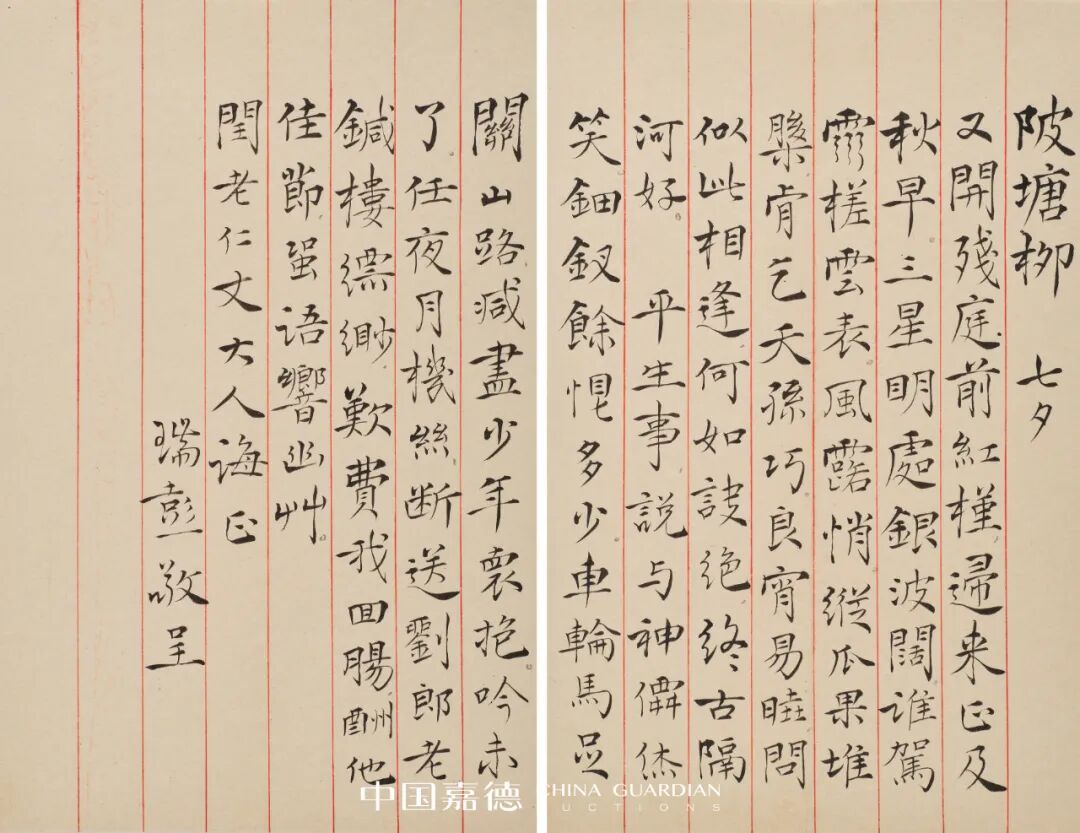 陂塘柳 七夕
又開殘庭前紅槿歸来正及
秋早三星明處銀波闊谁駕
靈槎雲表風露悄縱瓜果堆
槃肯乞天孫巧良宵易曉問
似此相逢何如訣絶終古隔
河好 平生事説与神僊休
笑鈿釵餘恨多少車輪馬足
關山路減盡少年褱抱吟未
了任夜月機絲断送劉郎老
鍼樓縹緲歎費我回腸酬他
佳節蛩语響幽艸
閏老仁丈大人誨正
瑞彭敬呈
中国嘉德 CHINA GUARDIAN
AUCTIONS